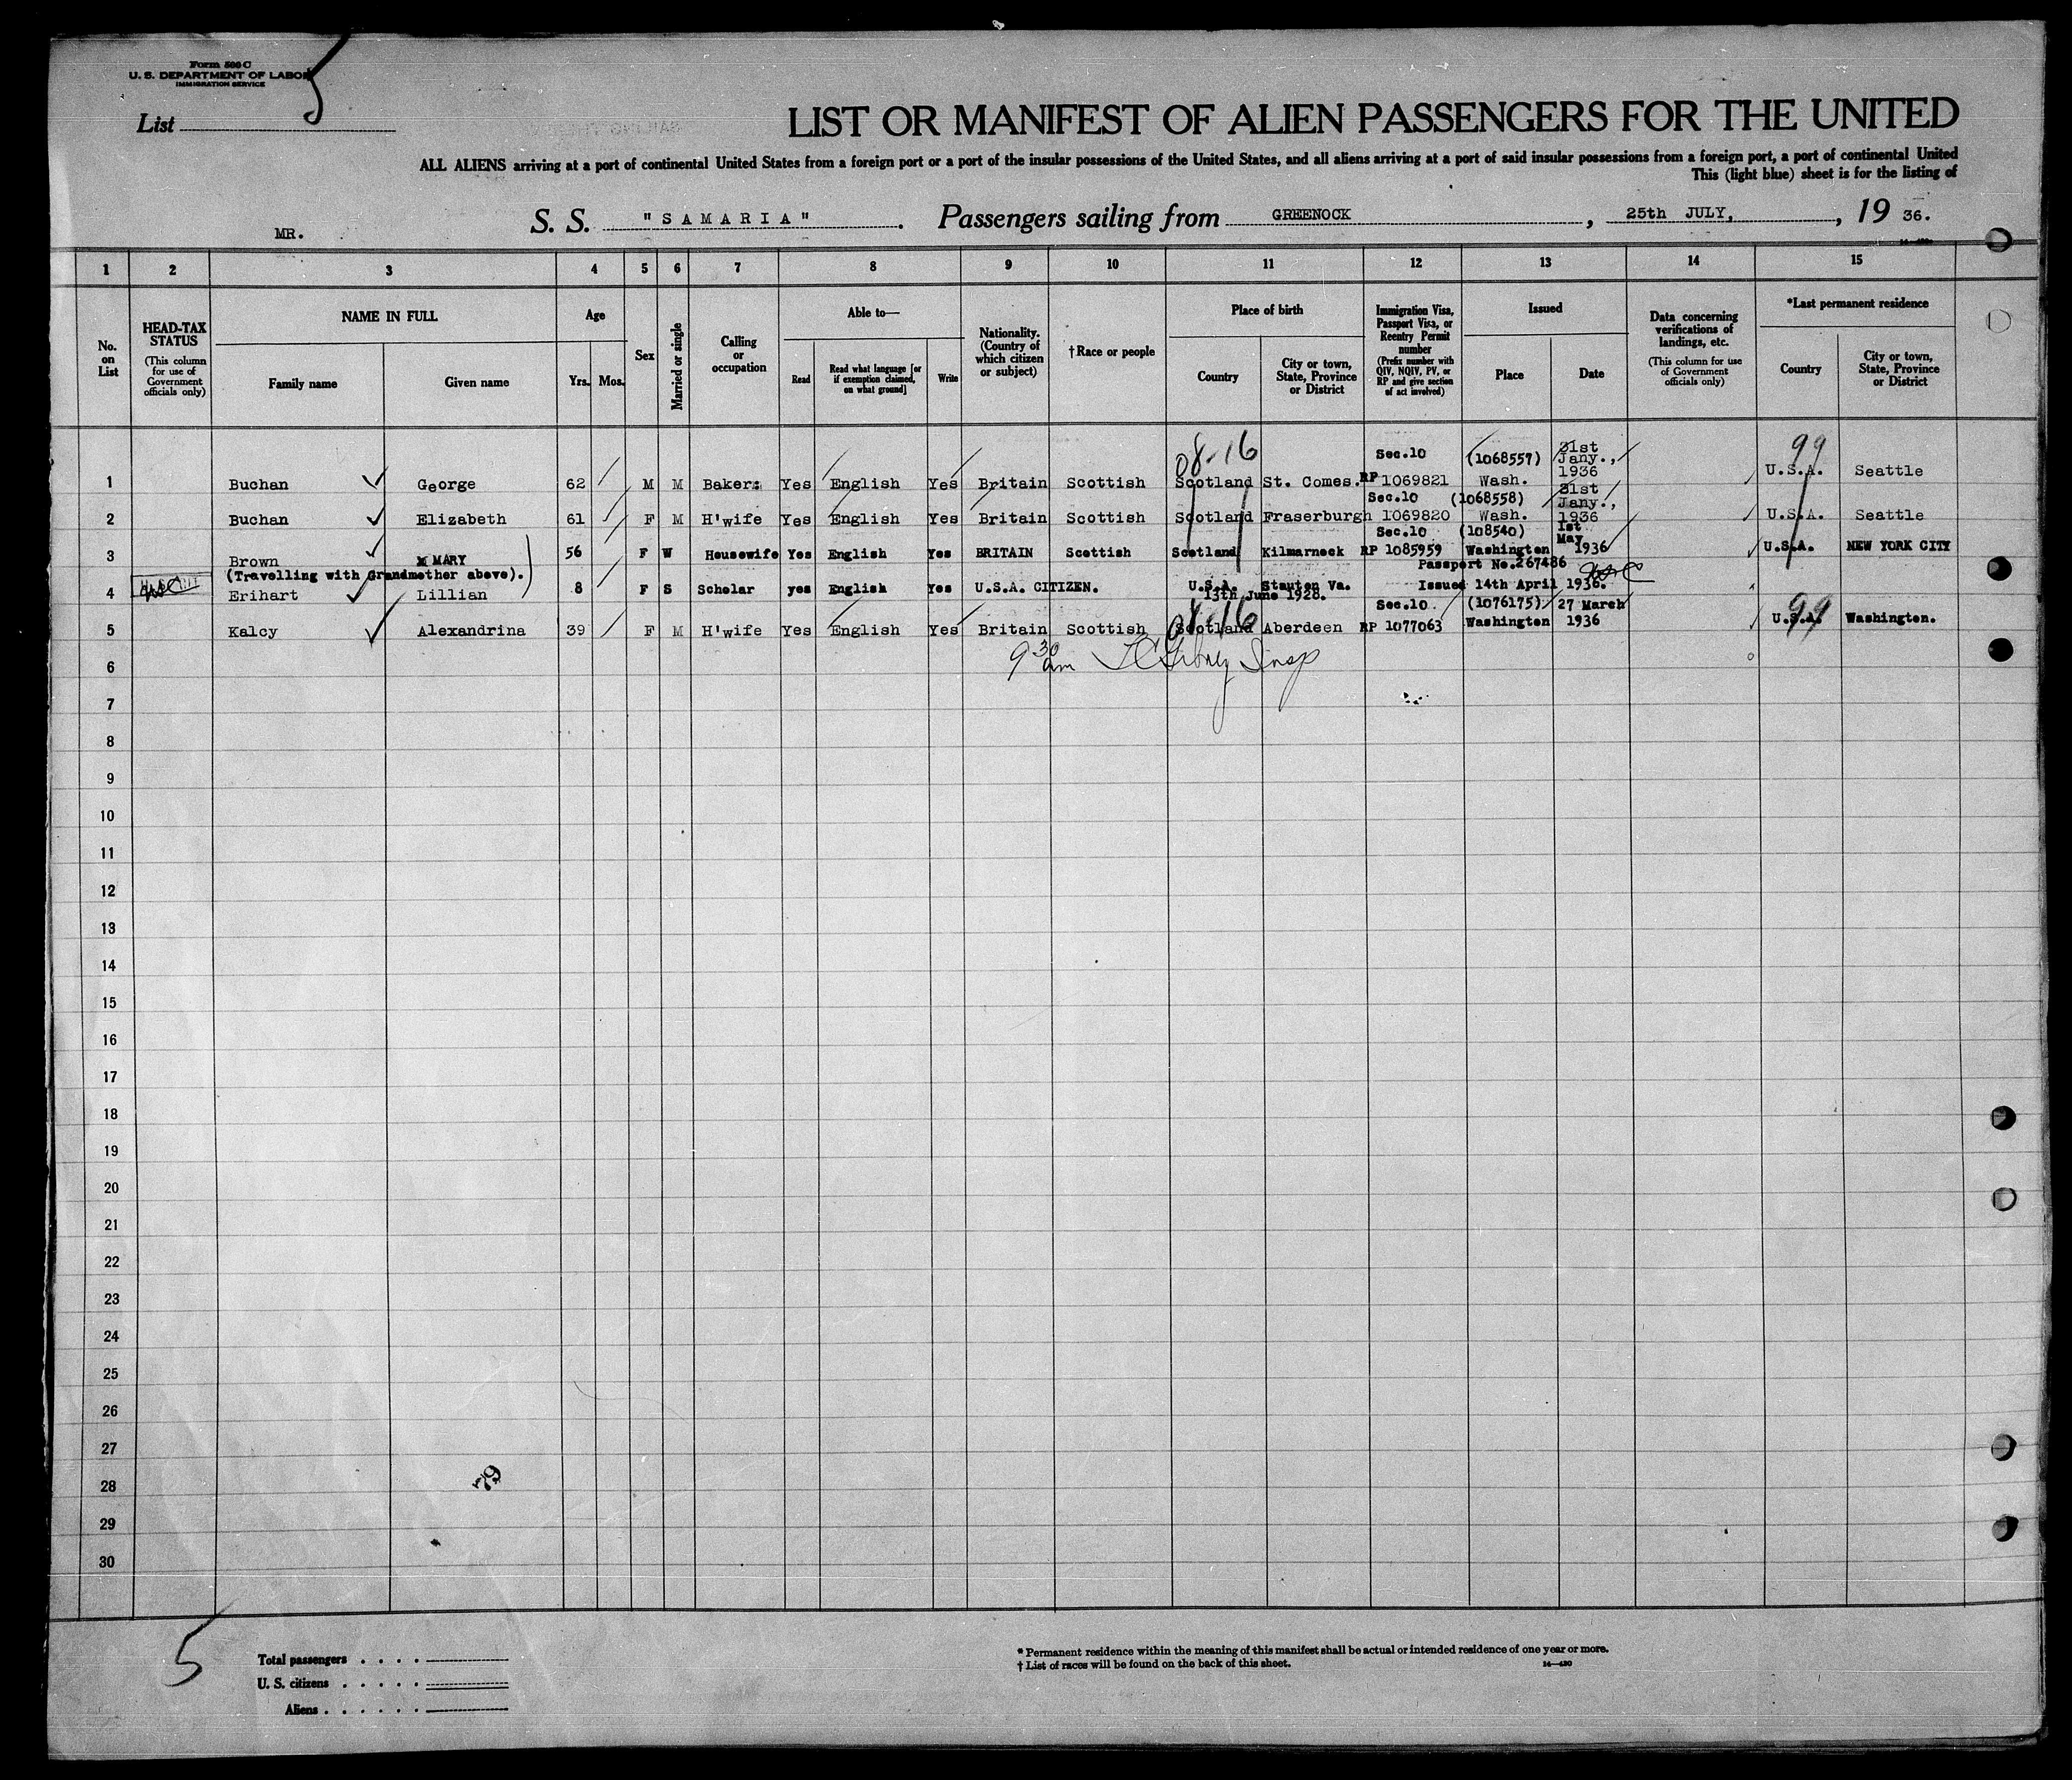 Form 500 C
U. S. DEPARTMENT OF LABOR
IMMIGRATION SERVICE
List 5
LIST OR MANIFEST OF ALIEN PASSENGERS FOR THE UNITED
ALL ALIENS arriving at a port of continental United States from a foreign port or a port of the insular possessions of the United States, and all aliens arriving at a port of said insular possessions from a foreign port, a port of continental United
This (light blue) sheet is for the listing of
MR.
S. S. "SAMARIA". Passengers sailing from GREENOCK, 25th JULY, , 19 36.
1 2 3 4 5 6 7 8 9 10 11 12 13 14 15
No. on List
HEAD-TAX STATUS
(This column for use of Government officials only)
NAME IN FULL
Family name
Given name
Age
Yrs. Mos.
Sex
Married or single
Calling or occupation
Able to—
Read
Read what language [or if exemption claimed, on what ground]
Write
Nationality. (Country of which citizen or subject)
†Race or people
Place of birth
Country
City or town, State, Province or District
Immigration Visa, Passport Visa, or Reentry Permit number
(Prefix number with QIV, NQIV, PV, or RP and give section of act involved)
Issued
Place
Date
Data concerning verifications of landings, etc.
(This column for use of Government officials only)
*Last permanent residence
Country
City or town, State, Province or District
08-16 Sec.10 (1068557) 31st Jany., 99
1 Buchan George 62 M M Baker: Yes English Yes Britain Scottish Scotland St. Comes. RP 1069821 Wash. 1936 U.S.A. Seattle
Sec.10 (1068558) 31st Jany.,
2 Buchan Elizabeth 61 F M H'wife Yes English Yes Britain Scottish Scotland Fraserburgh 1069820 Wash. 1936 U.S.A. Seattle
Sec.10 (108540) 1st May
3 Brown MARY 56 F W Housewife Yes English Yes BRITAIN Scottish Scotland Kilmarnock RP 1085959 Washington 1936 U.S.A. NEW YORK CITY
(Travelling with Grandmother above). Passport No.267486
4 Erihart Lillian 8 F S Scholar yes English Yes U.S.A. CITIZEN. U.S.A. Stauton Va. Issued 14th April 1936.
13th June 1928.
08-16 Sec.10 (1076175) 27 March 99
5 Kalcy Alexandrina 39 F M H'wife Yes English Yes Britain Scottish Scotland Aberdeen RP 1077063 Washington 1936 U.S.A. Washington.
6 9 30 am Insp
7
8
9
10
11
12
13
14
15
16
17
18
19
20
21
22
23
24
25
26
27
28
79
29
30
5
Total passengers . . . .
U. S. citizens . . . . .
Aliens . . . . . .
* Permanent residence within the meaning of this manifest shall be actual or intended residence of one year or more.
† List of races will be found on the back of this sheet.
14—430